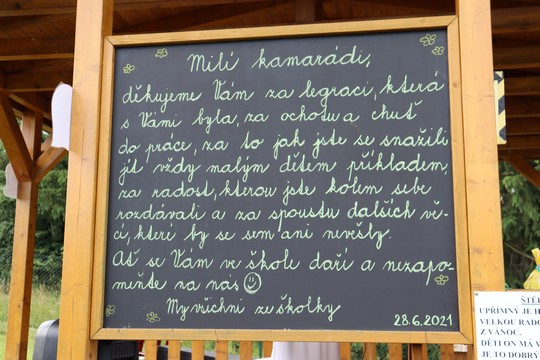 Milí kamarádi,
děkujeme Vám za legraci, která
s Vámi byla, za ochotu a chuť
do práce, za to jak jste se snažili
jít vždy malým dětem příkladem,
za radost, kterou jste kolem sebe
rozdávali a za spoustu dalších vě-
cí, které by se sem ani nevešly.
Ať se Vám ve škole daří a nezapo-
meňte na nás
My všichni ze školky
28.6.2021
UPŘÍMNÝ JE
VELKOU
Z VÁNOC.
DĚTI ON MÁ